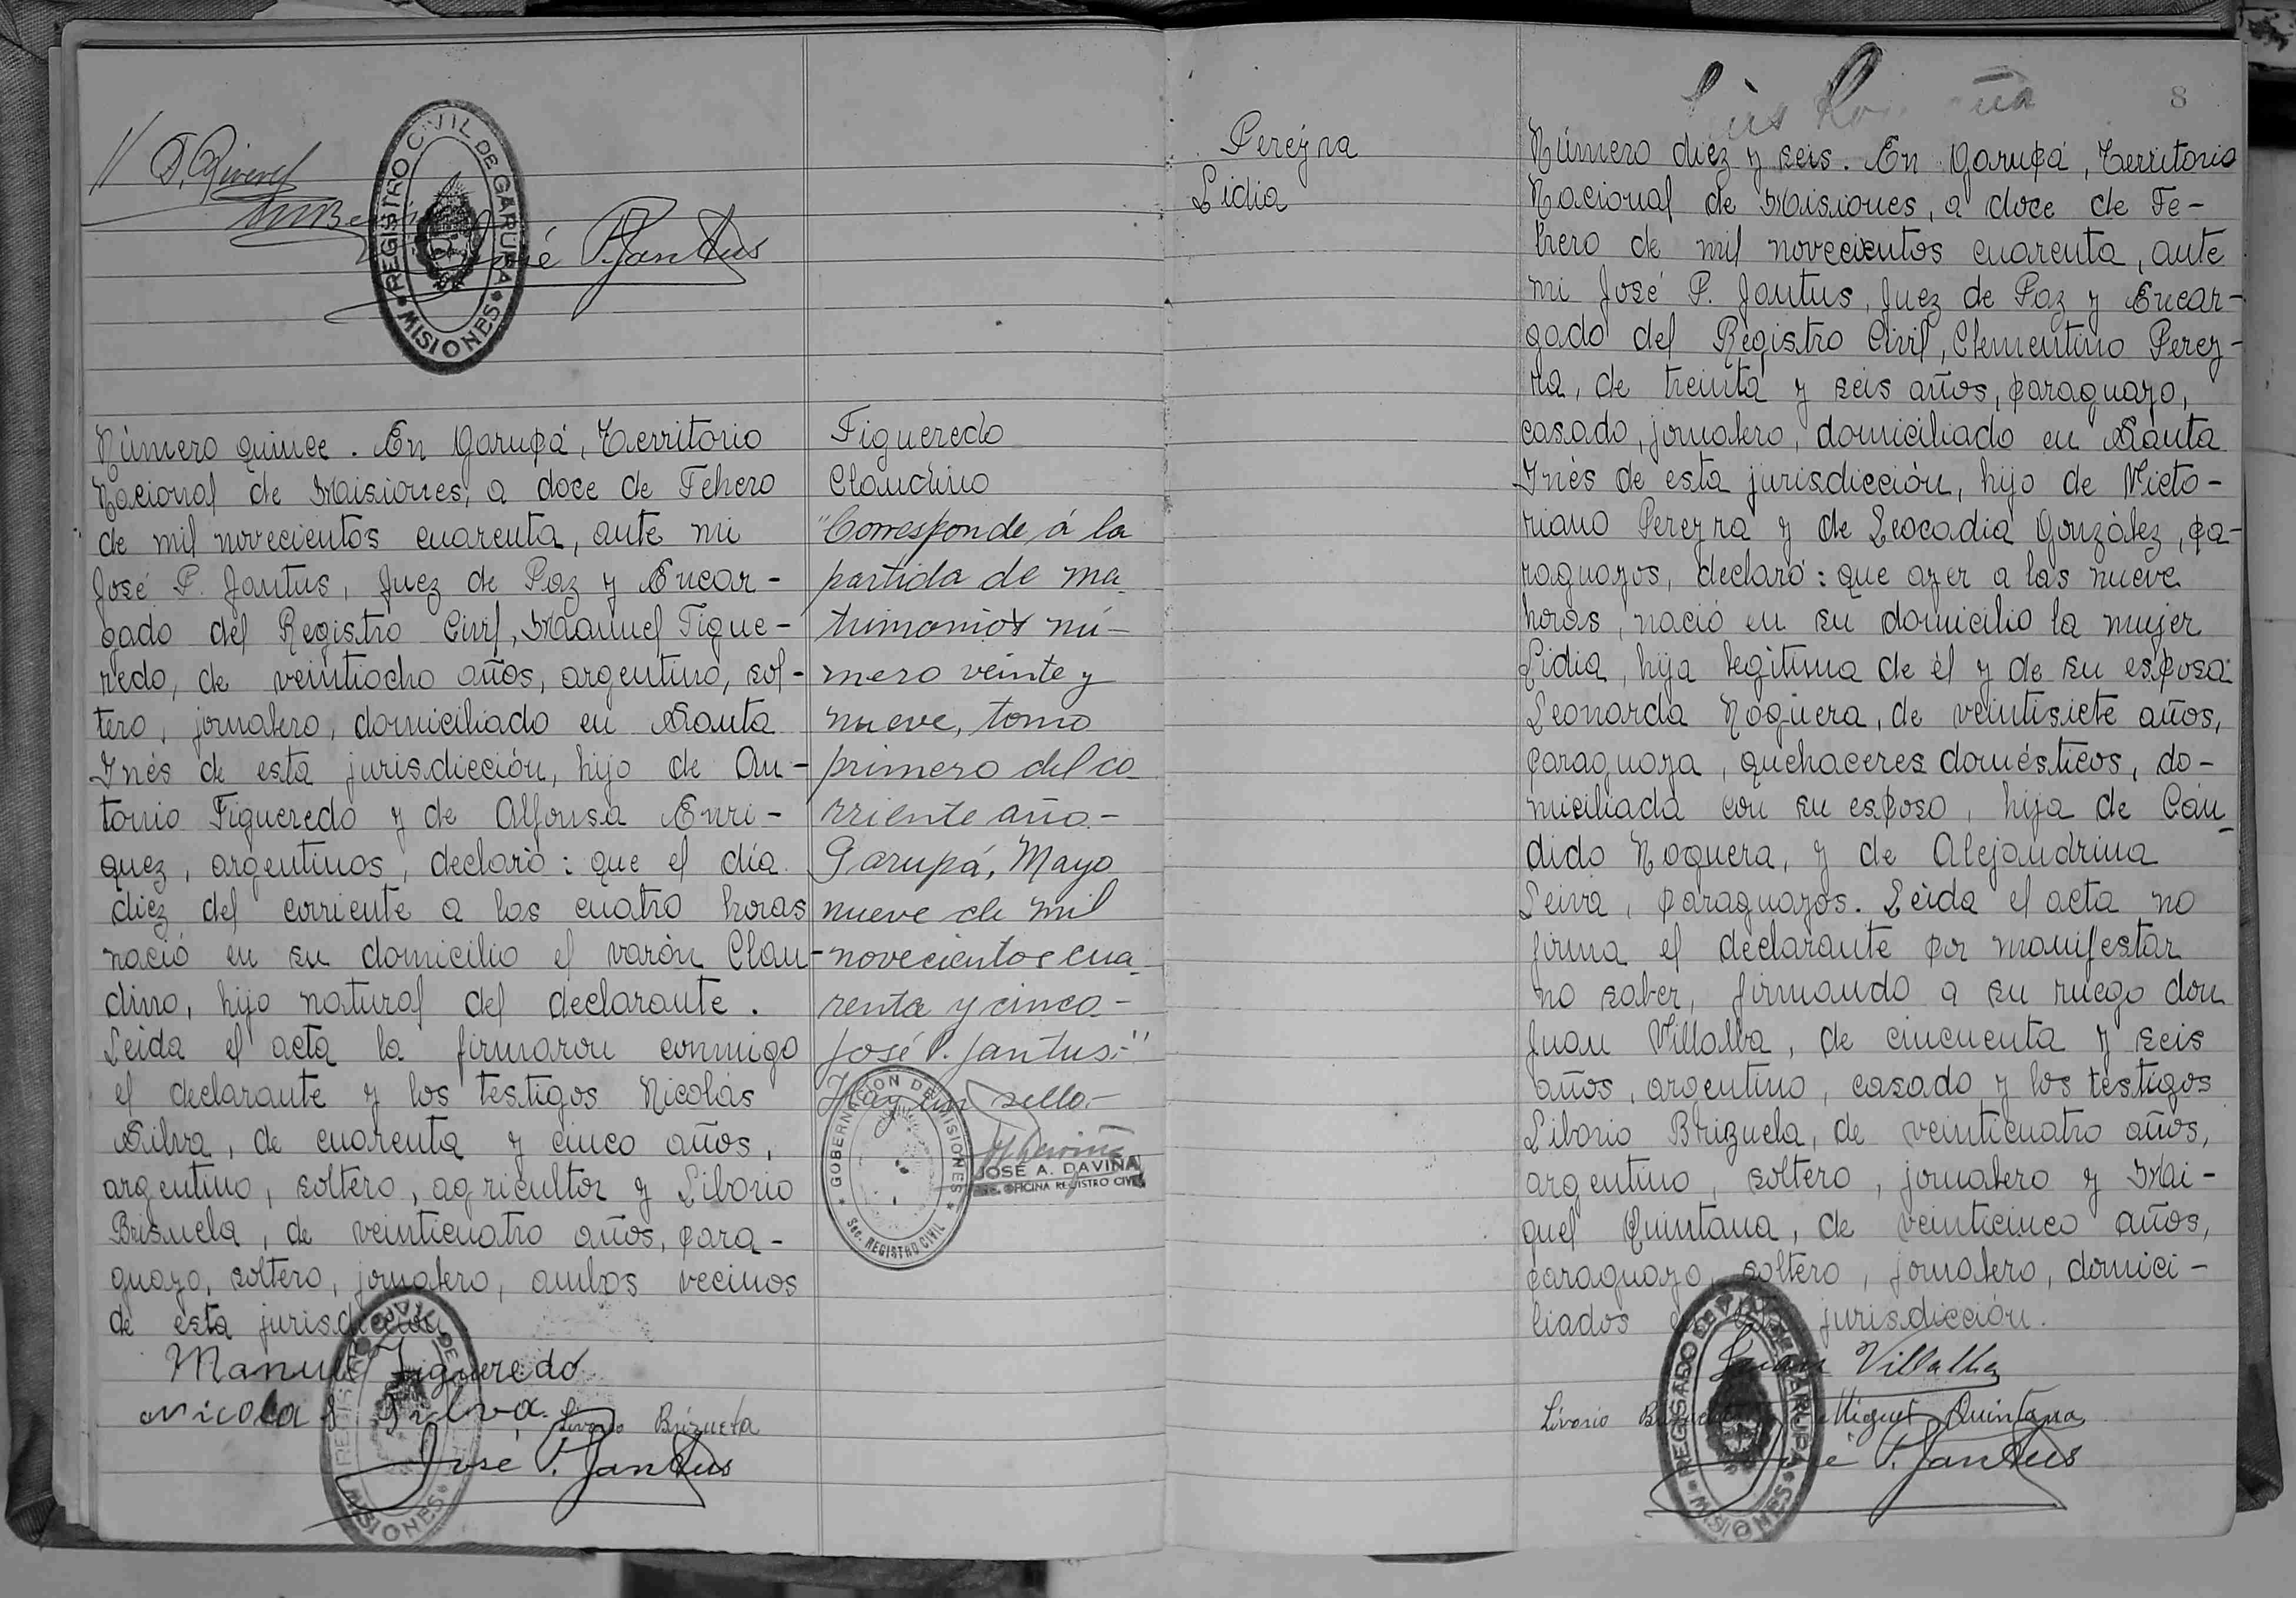 REGISTRO CIVIL DE GARUPA
MISIONES
José P. Jantus
Número quince. En Garupá, Territorio
Nacional de Misiones, a doce de Febrero
de mil novecientos cuarenta, ante mi
José P. Jantus, Juez de Paz y Encar-
gado del Registro Civil, Manuel Figue-
redo, de veintiocho años, argentino, sol-
tero, jornalero, domiciliado en Santa
Inés de esta jurisdicción, hijo de An-
tonio Figueredo y de Alfonsa Enri-
quez, argentinos, declaró: que el día
diez del corriente a las cuatro horas
nació en su domicilio el varón Clau-
dino, hijo natural del declarante.
Leida el acta la firmaron conmigo
el declarante y los testigos Nicolás
Silva, de cuarenta y cinco años,
argentino, soltero, agricultor y Liborio
Brisuela, de veinticuatro años, para-
guayo, soltero, jornalero, ambos vecinos
de esta jurisdicción
Manuel Figueredo
Nicolas Silva. Livorio Brizuela
José P. Jantus
MISIONES
Figueredo
Claudino
"Corresponde á la
partida de ma-
trimonios nú-
mero veinte y
nueve, tomo
primero del co
rriente año.-
Garupá, Mayo
nueve de mil
novecientos cua-
renta y cinco-
José P. Jantus.-"
Hay un sello.-
GOBERNACION DE MISIONES
Sec. REGISTRO CIVIL
JOSÉ A. DAVIÑA
OFICINA REGISTRO CIVIL
Pereyra
Lidia
8
Número diez y seis. En Garupá, Territorio
Nacional de Misiones, a doce de Fe-
brero de mil novecientos cuarenta, ante
mi José P. Jantus, Juez de Paz y Encar-
gado del Registro Civil, Clementino Perey-
ra, de treinta y seis años, paraguayo,
casado, jornalero, domiciliado en Santa
Inés de esta jurisdicción, hijo de Victo-
riano Pereyra y de Leocadia González, pa-
raguayos, declaró: que ayer a las nueve
horas, nació en su domicilio la mujer
Lidia, hija legítima de él y de su esposa
Leonarda Noguera, de veintisiete años,
paraguaya, quehaceres domésticos, do-
miciliada con su esposo, hija de Cán-
dido Noguera, y de Alejandrina
Leiva, paraguayos. Leida el acta no
firma el declarante por manifestar
no saber, firmando a su ruego don
Juan Villalba, de cincuenta y seis
años, argentino, casado y los testigos
Liborio Brizuela, de veinticuatro años,
argentino, soltero, jornalero y Mi-
guel Quintana, de veinticinco años,
paraguayo, soltero, jornalero, domici-
liados jurisdicción.
Juan Villalba
Livorio Brizuela Miguel Quintana
José P. Jantus
MISIONES